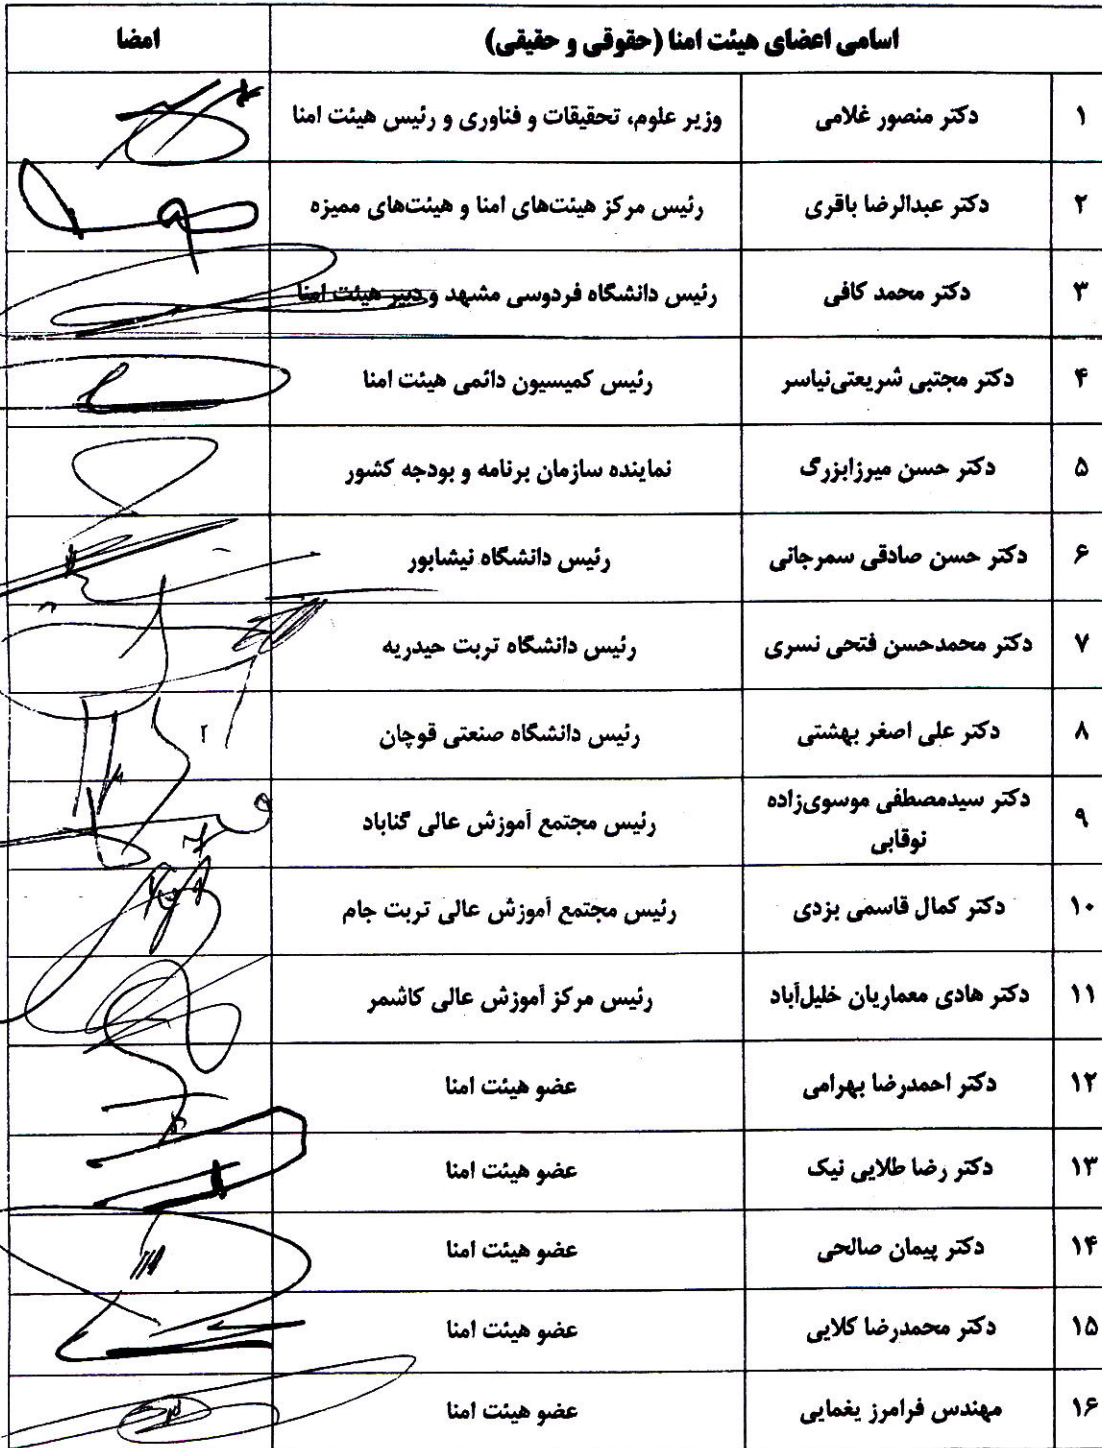 اسامی اعضای هیئت امنا (حقوقی و حقیقی) امضا
۱ دکتر منصور غلامی وزیر علوم، تحقیقات و فناوری و رئیس هیئت امنا
۲ دکتر عبدالرضا باقری رئیس مرکز هیئت‌های امنا و هیئت‌های ممیزه
۳ دکتر محمد کافی رئیس دانشگاه فردوسی مشهد و دبیر هیئت امنا
۴ دکتر مجتبی شریعتی‌نیاسر رئیس کمیسیون دائمی هیئت امنا
۵ دکتر حسن میرزابزرگ نماینده سازمان برنامه و بودجه کشور
۶ دکتر حسن صادقی سمرجانی رئیس دانشگاه نیشابور
۷ دکتر محمدحسن فتحی نسری رئیس دانشگاه تربت حیدریه
۸ دکتر علی اصغر بهشتی رئیس دانشگاه صنعتی قوچان
۹ دکتر سیدمصطفی موسوی‌زاده رئیس مجتمع آموزش عالی گناباد
نوقابی
۱۰ دکتر کمال قاسمی بزدی رئیس مجتمع آموزش عالی تربت جام
۱۱ دکتر هادی معماریان خلیل‌آباد رئیس مرکز آموزش عالی کاشمر
۱۲ دکتر احمدرضا بهرامی عضو هیئت امنا
۱۳ دکتر رضا طلایی نیک عضو هیئت امنا
۱۴ دکتر پیمان صالحی عضو هیئت امنا
۱۵ دکتر محمدرضا کلایی عضو هیئت امنا
۱۶ مهندس فرامرز یغمایی عضو هیئت امنا